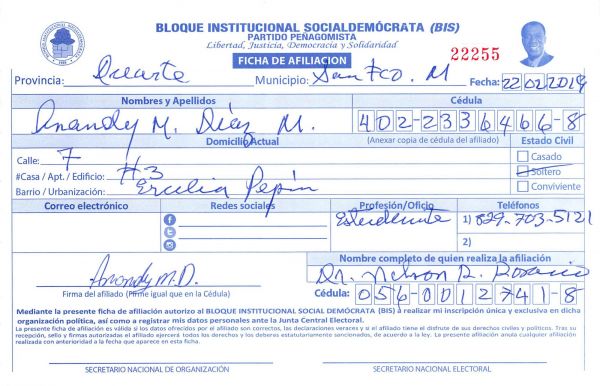 BLOQUE INSTITUCIONAL SOCIALDEMÓCRATA (BIS)
PARTIDO PEÑAGOMISTA
Libertad, Justicia, Democracia y Solidaridad
FICHA DE AFILIACIÓN
22255
Provincia: Duarte Municipio: San Fco. M Fecha: 22022019
Nombres y Apellidos Cédula
Anandy M. Díaz M. 402-2336466-8
Domicilio Actual (Anexar copia de cédula del afiliado) Estado Civil
Calle: 7 Casado
#Casa / Apt. / Edificio: #3 Soltero
Barrio / Urbanización: Ercilia Pepín Conviviente
Correo electrónico Redes sociales Profesión/Oficio Teléfonos
Estudiante 1) 829-703-5121
2)
Nombre completo de quien realiza la afiliación
Anandy M.D. Dr. Nelson R. Rosario
Firma del afiliado (Firme igual que en la Cédula) Cédula: 056-0012741-8
Mediante la presente ficha de afiliación autorizo al BLOQUE INSTITUCIONAL SOCIAL DEMÓCRATA (BIS) a realizar mi inscripción única y exclusiva en dicha
organización política, así como a registrar mis datos personales ante la Junta Central Electoral.
La presente ficha de afiliación es válida si los datos ofrecidos por el afiliado son correctos, las declaraciones veraces y si el afiliado tiene el disfrute de sus derechos civiles y políticos. Tras su
recepción, sello y firmas autorizadas el afiliado ejercerá todos los derechos y los deberes estatutariamente sancionados, de acuerdo a la ley. La presente afiliación anula cualquier afiliación
realizada con anterioridad a la fecha que aparece en esta ficha.
SECRETARIO NACIONAL DE ORGANIZACIÓN SECRETARIO NACIONAL ELECTORAL